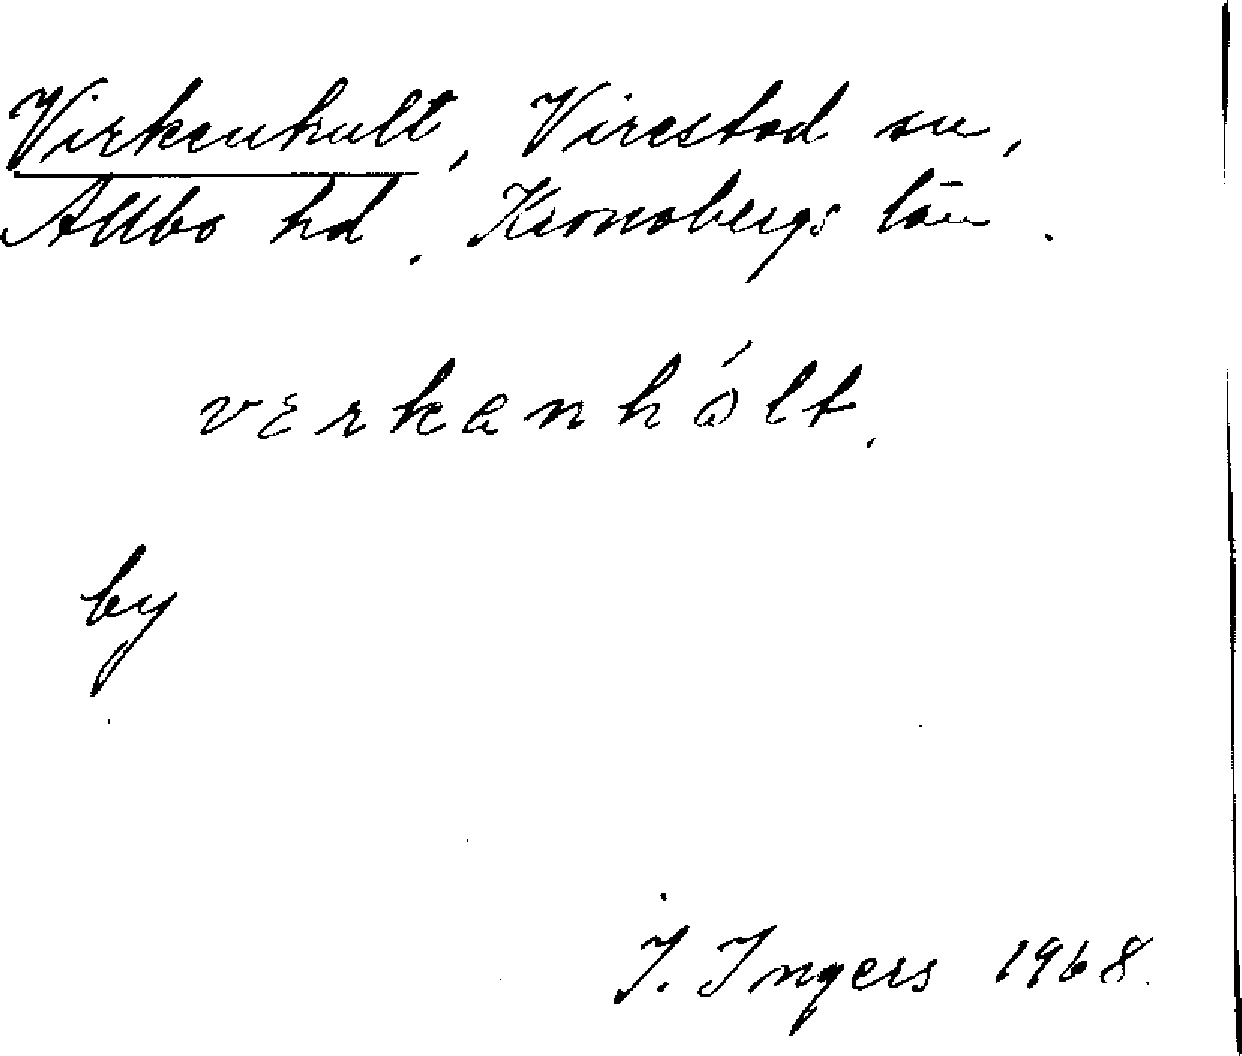 Virkenhult, Virestad sn,
Allbo hd. Kronobergs län.
vɛrkanhólt.
by
I. Ingers 1968.